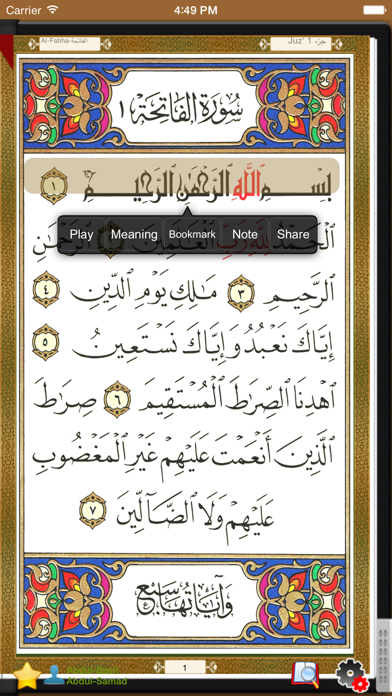 Carrier 4:49 PM
Al-Fatiha-الفاتحة
Juz' 1 جزء
سُورَةُ الفَاتِحَةِ ١
بِسْمِ ٱللَّهِ ٱلرَّحْمَٰنِ ٱلرَّحِيمِ ١
Play Meaning Bookmark Note Share
ٱلْحَمْدُ لِلَّهِ رَبِّ ٱلْعَٰلَمِينَ ٱلرَّحْمَٰنِ
ٱلرَّحِيمِ ٣ مَٰلِكِ يَوْمِ ٱلدِّينِ ٤
إِيَّاكَ نَعْبُدُ وَإِيَّاكَ نَسْتَعِينُ ٥
ٱهْدِنَا ٱلصِّرَٰطَ ٱلْمُسْتَقِيمَ ٦ صِرَٰطَ
ٱلَّذِينَ أَنْعَمْتَ عَلَيْهِمْ غَيْرِ ٱلْمَغْضُوبِ
عَلَيْهِمْ وَلَا ٱلضَّآلِّينَ ٧
وَآيَاتُهَا سَبْعٌ
1
Abdul-Samad